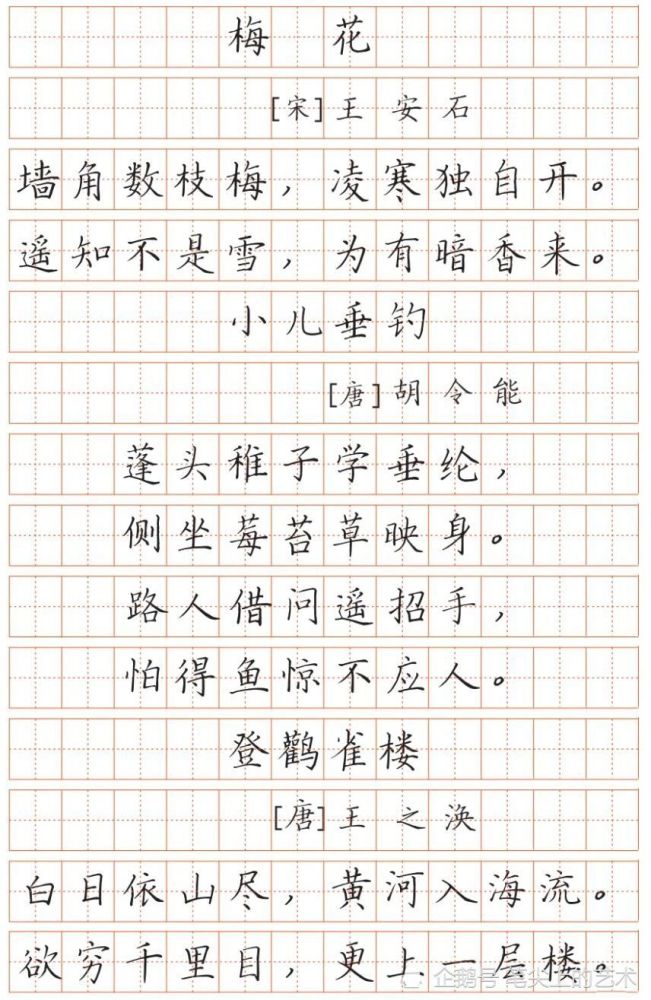 梅花
[宋]王安石
墙角数枝梅，凌寒独自开。
遥知不是雪，为有暗香来。
小儿垂钓
[唐]胡令能
蓬头稚子学垂纶，
侧坐莓苔草映身。
路人借问遥招手，
怕得鱼惊不应人。
登鹳雀楼
[唐]王之涣
白日依山尽，黄河入海流。
欲穷千里目，更上一层楼。
企鹅号 笔尖上的艺术